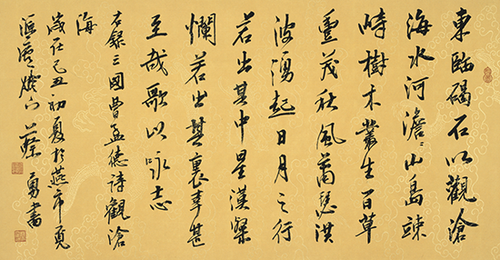 東臨碣石以觀滄
海水河澹々山島竦
峙樹木叢生百草
豐茂秋風蕭瑟洪
波湧起日月之行
若出其中星漢粲
爛若出其裏幸甚
至哉歌以咏志
右錄三國曹孟德詩觀滄
海
歲在己丑初夏於燕市
蔡勇書